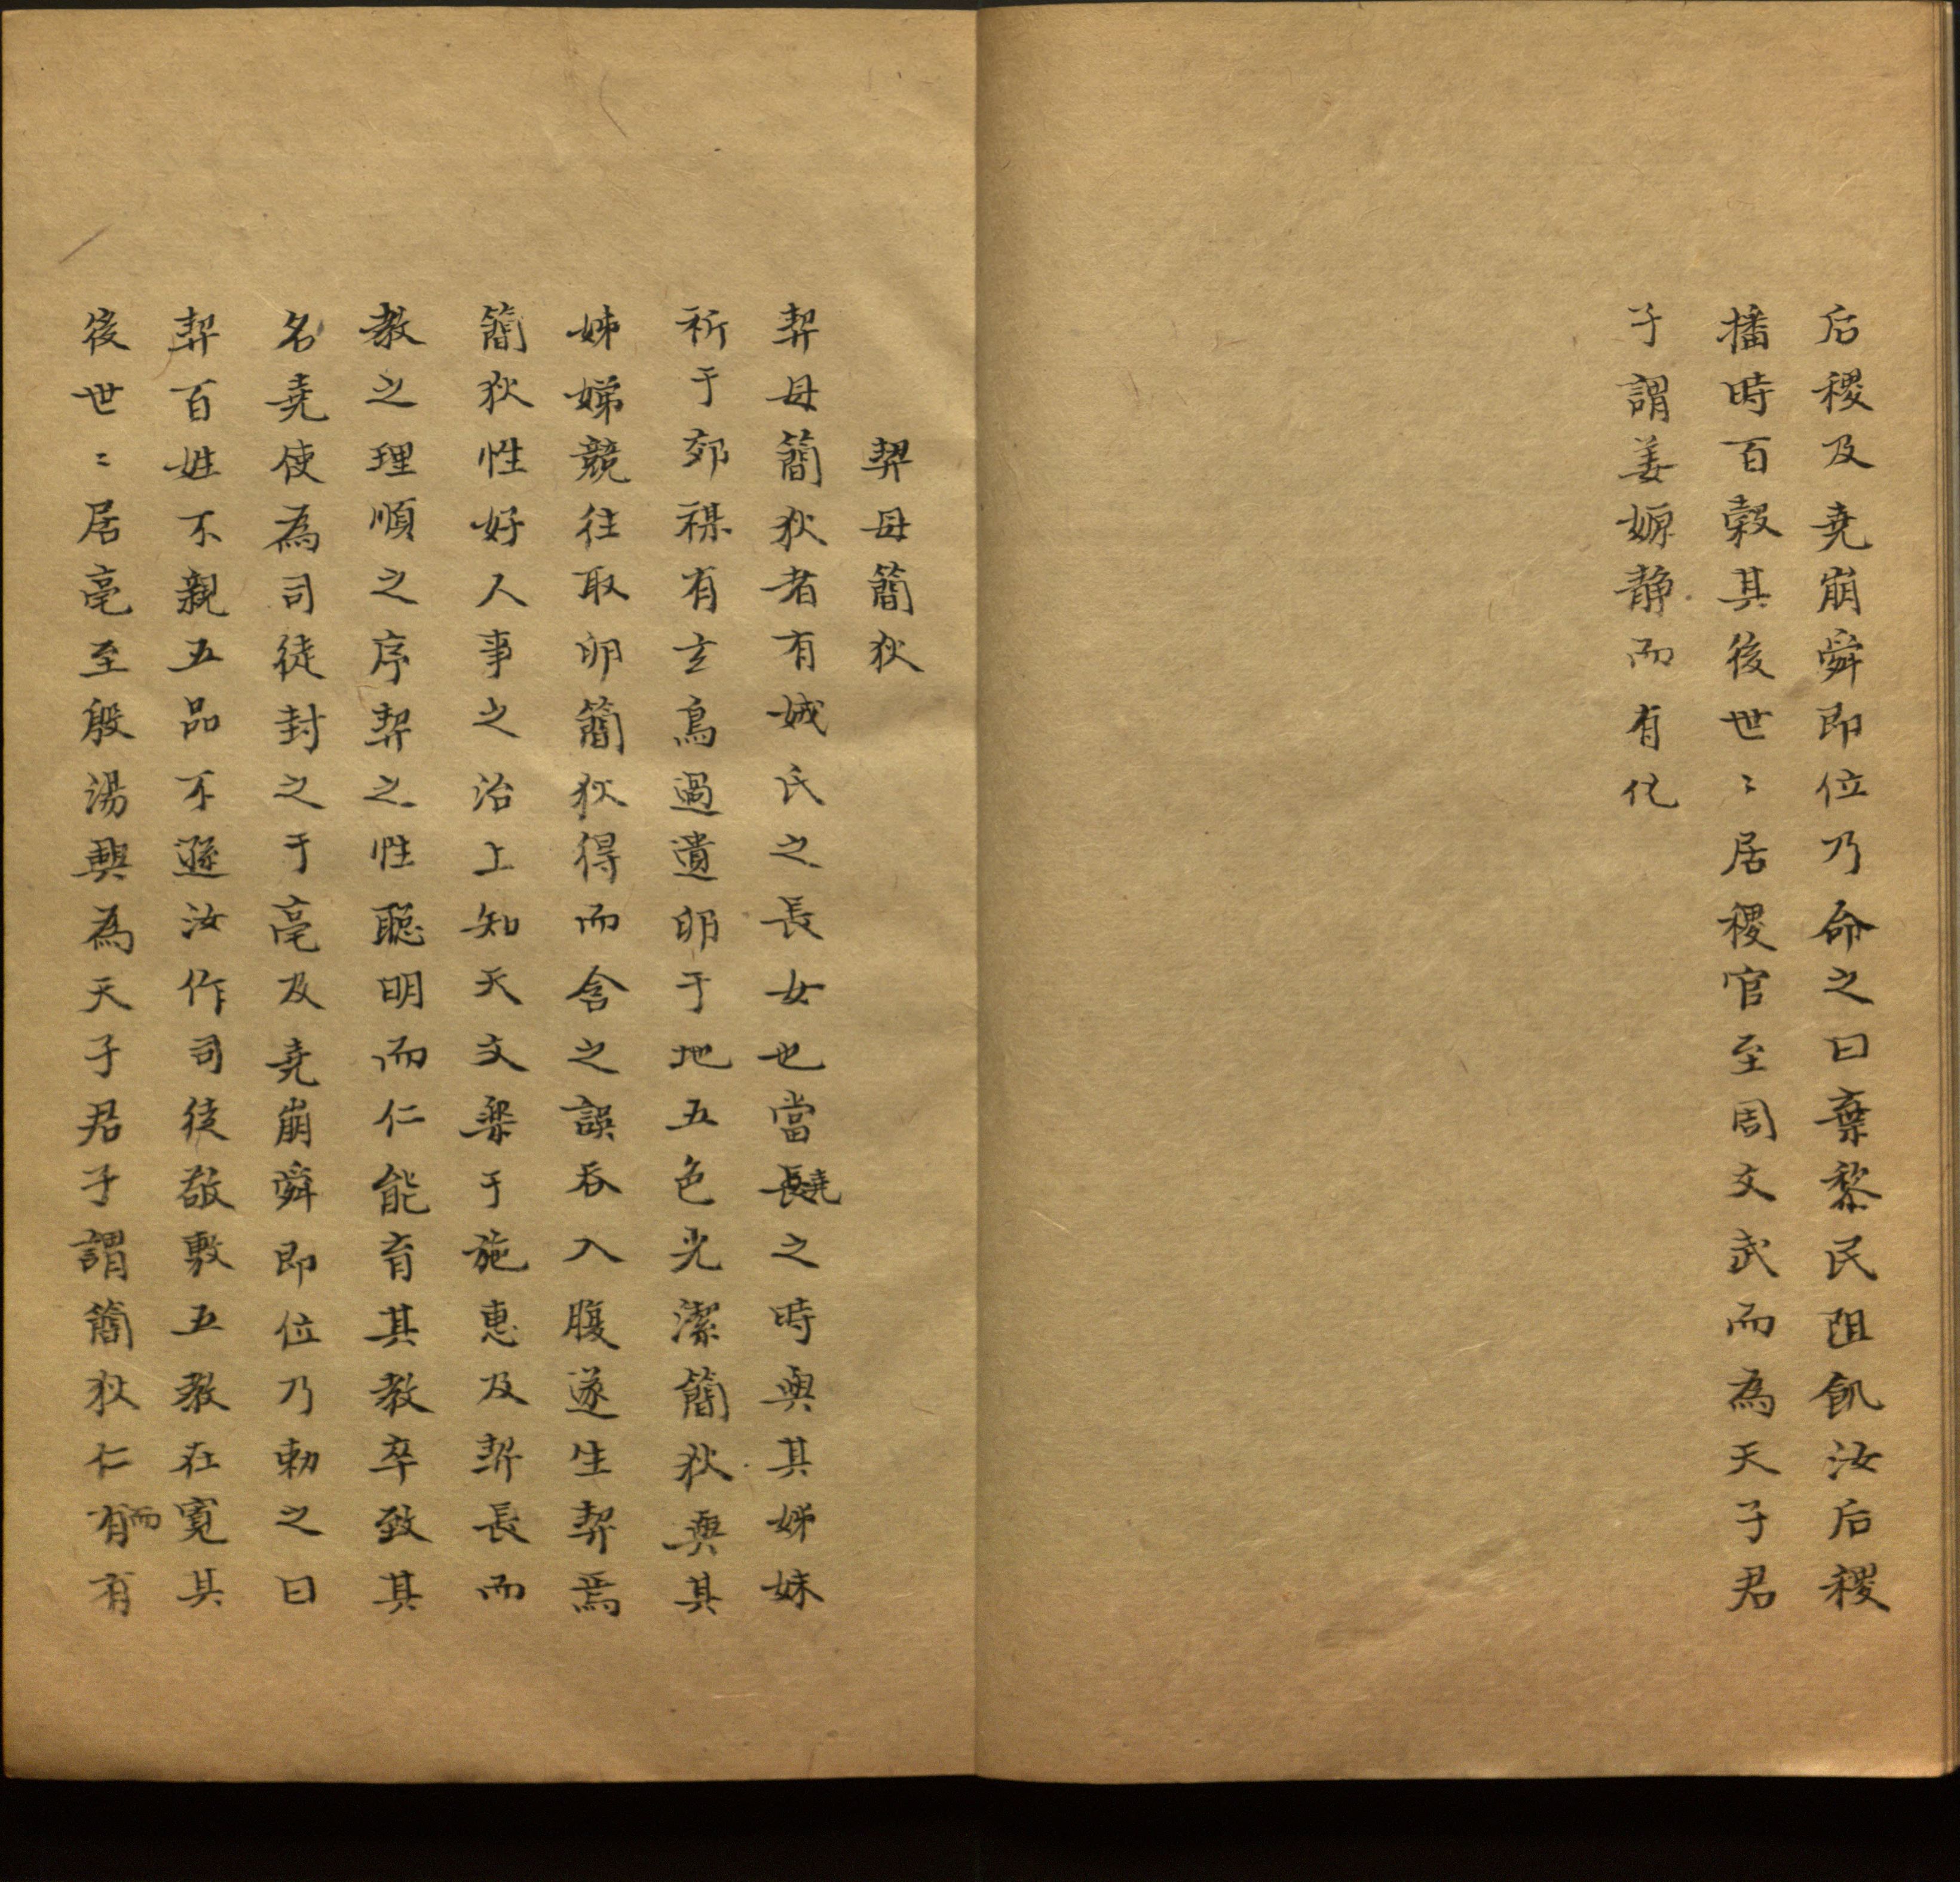 后稷及堯崩舜即位乃命之曰棄黎民阻飢汝后稷
播時百穀其後世〻居稷官至周文武而為天子君
子謂姜嫄静而有化
契母簡狄
契母簡狄者有娀氏之長女也當堯之時與其姊妹
祈于郊禖有玄鳥過遺卵于地五色光潔簡狄與其
姊娣競往取卵簡狄得而含之誤吞入腹遂生契焉
簡狄性好人事之治上知天文樂于施惠及契長而
教之理順之序契之性聰明而仁能育其教卒致其
名堯使為司徒封之于亳及堯崩舜即位乃勅之曰
契百姓不親五品不遜汝作司徒敬敷五教在寬其
後世〻居亳至殷湯興為天子君子謂簡狄仁而有